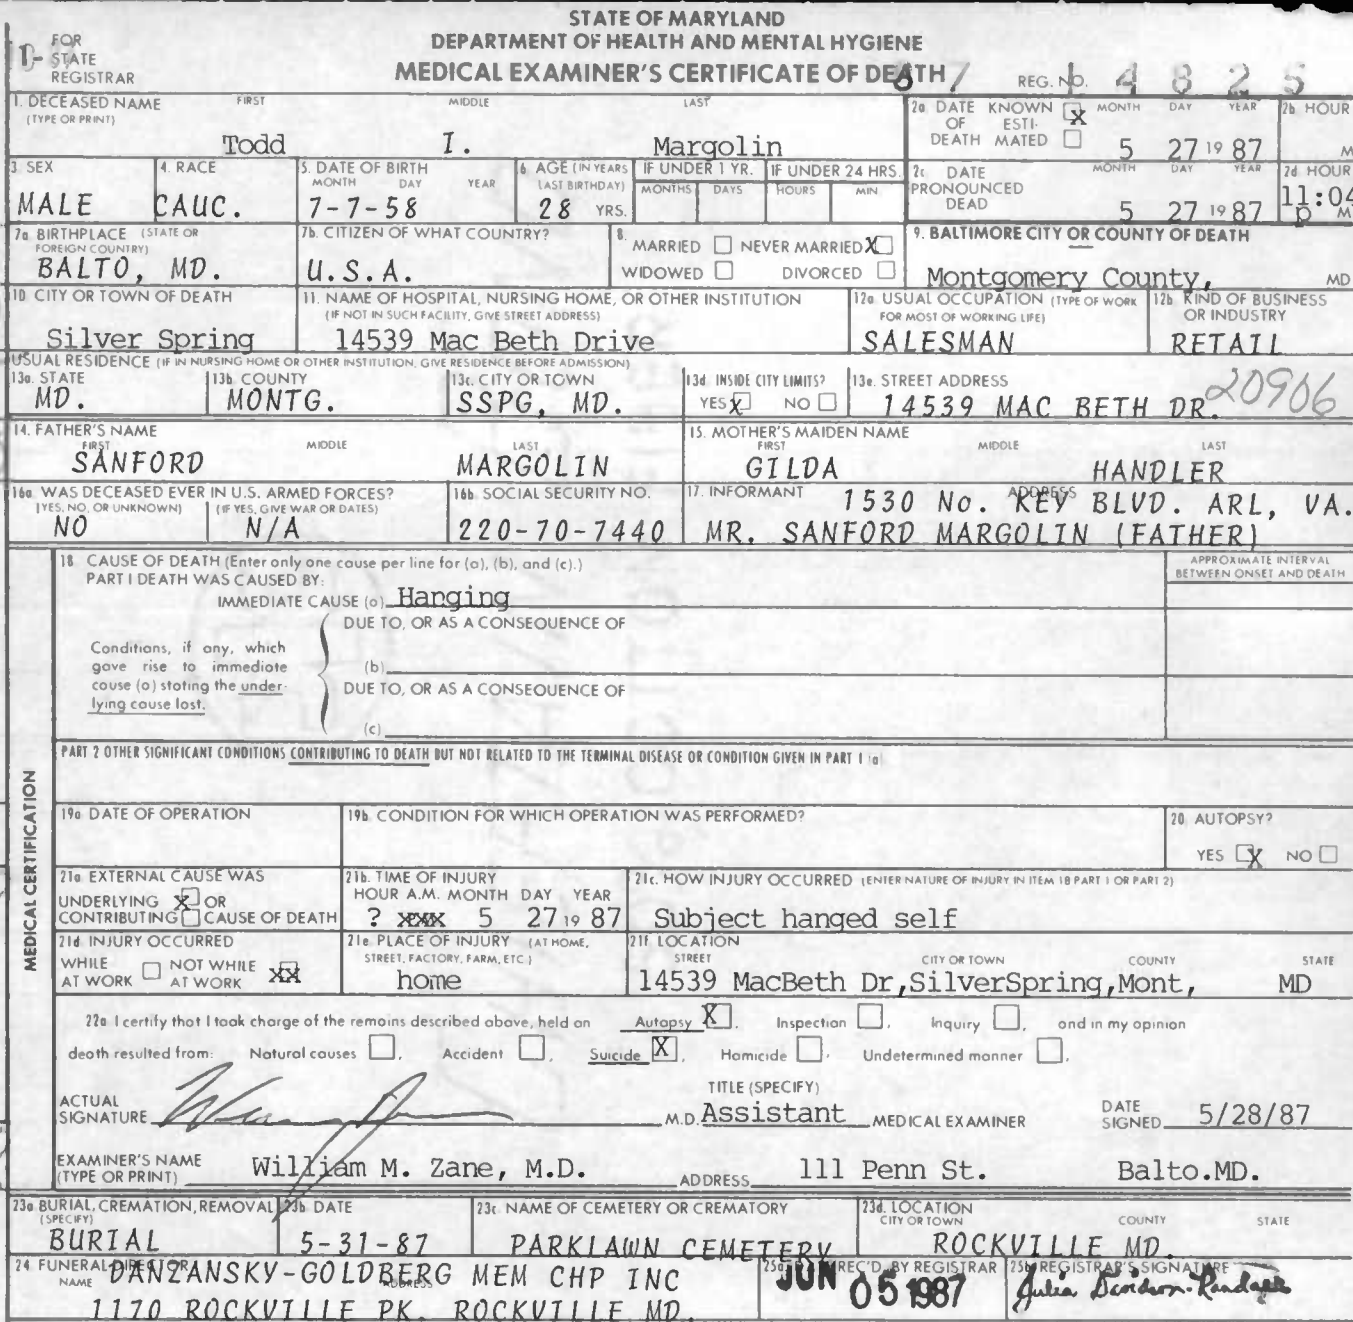 STATE OF MARYLAND
DEPARTMENT OF HEALTH AND MENTAL HYGIENE
MEDICAL EXAMINER'S CERTIFICATE OF DEATH
FOR STATE REGISTRAR
REG. NO. 87 14825
1. DECEASED NAME (TYPE OR PRINT) FIRST MIDDLE LAST
Todd I. Margolin
2a. DATE OF DEATH KNOWN X ESTIMATED MONTH DAY YEAR 2b HOUR
5 27 19 87 M
3 SEX 4. RACE 5. DATE OF BIRTH MONTH DAY YEAR 6. AGE (IN YEARS LAST BIRTHDAY) IF UNDER 1 YR. MONTHS DAYS IF UNDER 24 HRS. HOURS MIN.
MALE CAUC. 7-7-58 28 YRS.
2c DATE PRONOUNCED DEAD MONTH DAY YEAR 2d HOUR
5 27 19 87 11:04 p M
7a BIRTHPLACE (STATE OR FOREIGN COUNTRY) 7b. CITIZEN OF WHAT COUNTRY?
BALTO, MD. U.S.A.
8. MARRIED NEVER MARRIED X
WIDOWED DIVORCED
9. BALTIMORE CITY OR COUNTY OF DEATH
Montgomery County, MD
10 CITY OR TOWN OF DEATH
Silver Spring
11. NAME OF HOSPITAL, NURSING HOME, OR OTHER INSTITUTION
(IF NOT IN SUCH FACILITY, GIVE STREET ADDRESS)
14539 Mac Beth Drive
12a USUAL OCCUPATION (TYPE OF WORK FOR MOST OF WORKING LIFE)
SALESMAN
12b. KIND OF BUSINESS OR INDUSTRY
RETAIL
USUAL RESIDENCE (IF IN NURSING HOME OR OTHER INSTITUTION, GIVE RESIDENCE BEFORE ADMISSION)
13a. STATE 13b COUNTY 13c. CITY OR TOWN 13d INSIDE CITY LIMITS? 13e. STREET ADDRESS
MD. MONTG. SSPG, MD. YES X NO 14539 MAC BETH DR. 20906
14. FATHER'S NAME FIRST MIDDLE LAST
SANFORD MARGOLIN
15. MOTHER'S MAIDEN NAME FIRST MIDDLE LAST
GILDA HANDLER
16a WAS DECEASED EVER IN U.S. ARMED FORCES?
(YES, NO, OR UNKNOWN) (IF YES, GIVE WAR OR DATES)
NO N/A
16b. SOCIAL SECURITY NO.
220-70-7440
17. INFORMANT ADDRESS
1530 No. KEY BLVD. ARL, VA.
MR. SANFORD MARGOLIN (FATHER)
MEDICAL CERTIFICATION
18 CAUSE OF DEATH (Enter only one cause per line for (a), (b), and (c).)
PART I DEATH WAS CAUSED BY:
APPROXIMATE INTERVAL BETWEEN ONSET AND DEATH
IMMEDIATE CAUSE (a) Hanging
DUE TO, OR AS A CONSEQUENCE OF
Conditions, if any, which
gave rise to immediate
cause (a) stating the under-
lying cause last.
(b)
DUE TO, OR AS A CONSEQUENCE OF
(c)
PART 2 OTHER SIGNIFICANT CONDITIONS CONTRIBUTING TO DEATH BUT NOT RELATED TO THE TERMINAL DISEASE OR CONDITION GIVEN IN PART 1 (a)
19a DATE OF OPERATION
19b. CONDITION FOR WHICH OPERATION WAS PERFORMED?
20 AUTOPSY?
YES X NO
21a EXTERNAL CAUSE WAS
UNDERLYING X OR
CONTRIBUTING CAUSE OF DEATH
21b. TIME OF INJURY
HOUR A.M. MONTH DAY YEAR
? XXXX 5 27 19 87
21c. HOW INJURY OCCURRED (ENTER NATURE OF INJURY IN ITEM 18 PART 1 OR PART 2)
Subject hanged self
21d INJURY OCCURRED
WHILE AT WORK NOT WHILE AT WORK XX
21e PLACE OF INJURY (AT HOME, STREET, FACTORY, FARM, ETC.)
home
21f LOCATION STREET CITY OR TOWN COUNTY STATE
14539 MacBeth Dr,SilverSpring,Mont, MD
22a I certify that I took charge of the remains described above, held an Autopsy X, Inspection, Inquiry, and in my opinion
death resulted from: Natural causes, Accident, Suicide X, Homicide, Undetermined manner.
ACTUAL SIGNATURE M.D.
TITLE (SPECIFY)
Assistant MEDICAL EXAMINER
DATE SIGNED 5/28/87
EXAMINER'S NAME (TYPE OR PRINT) William M. Zane, M.D. ADDRESS 111 Penn St. Balto.MD.
23a BURIAL, CREMATION, REMOVAL (SPECIFY) 23b DATE 23c NAME OF CEMETERY OR CREMATORY 23d. LOCATION CITY OR TOWN COUNTY STATE
BURIAL 5-31-87 PARKLAWN CEMETERY ROCKVILLE MD.
24 FUNERAL DIRECTOR NAME ADDRESS
DANZANSKY-GOLDBERG MEM CHP INC
1170 ROCKVILLE PK. ROCKVILLE MD.
25a REC'D. BY REGISTRAR
JUN 05 1987
25b REGISTRAR'S SIGNATURE
Julia Davidson-Randall